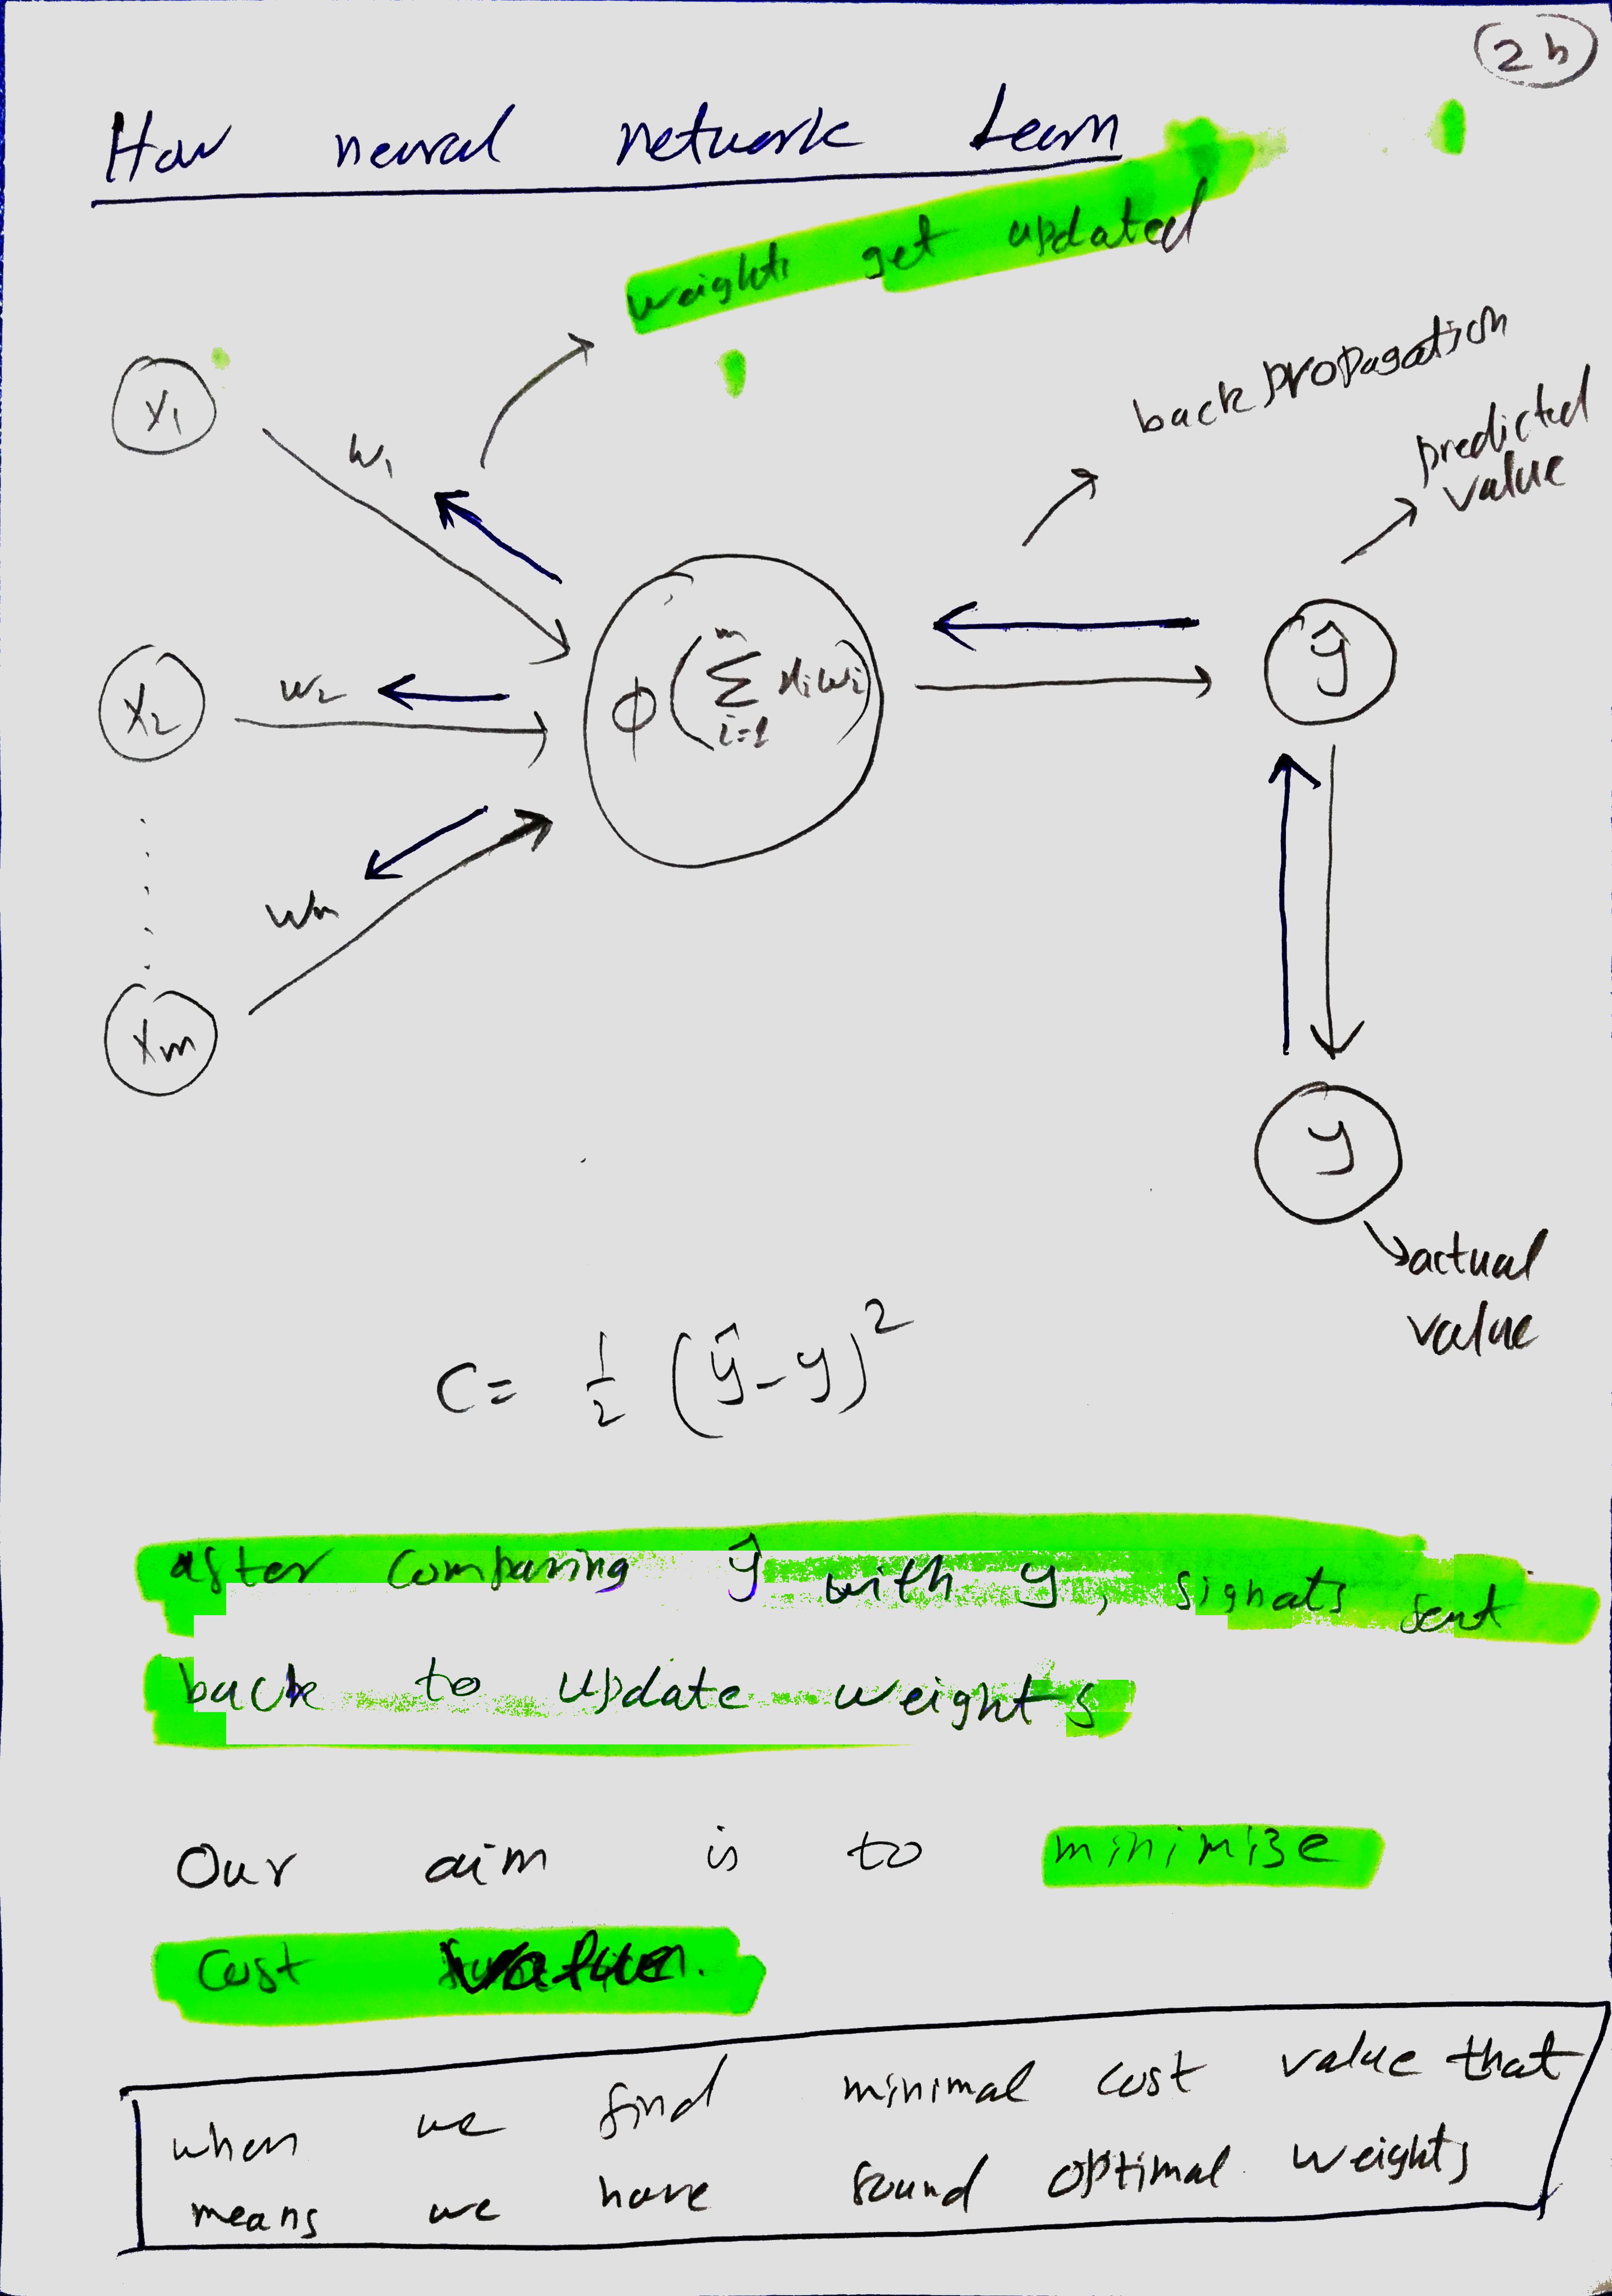 2b
How neural network Learn
weights get updated
back propagation
predicted
value
x₁
w₁
x₂
w₂
ϕ(∑ᵢ₌₁ᵐ xᵢwᵢ)
ŷ
wₘ
xₘ
y
actual
value
C = 1/2 (ŷ - y)²
after comparing ŷ with y, signals sent
back to update weights
Our aim is to minimize
cost value.
when we find minimal cost value that
means we have found optimal weights